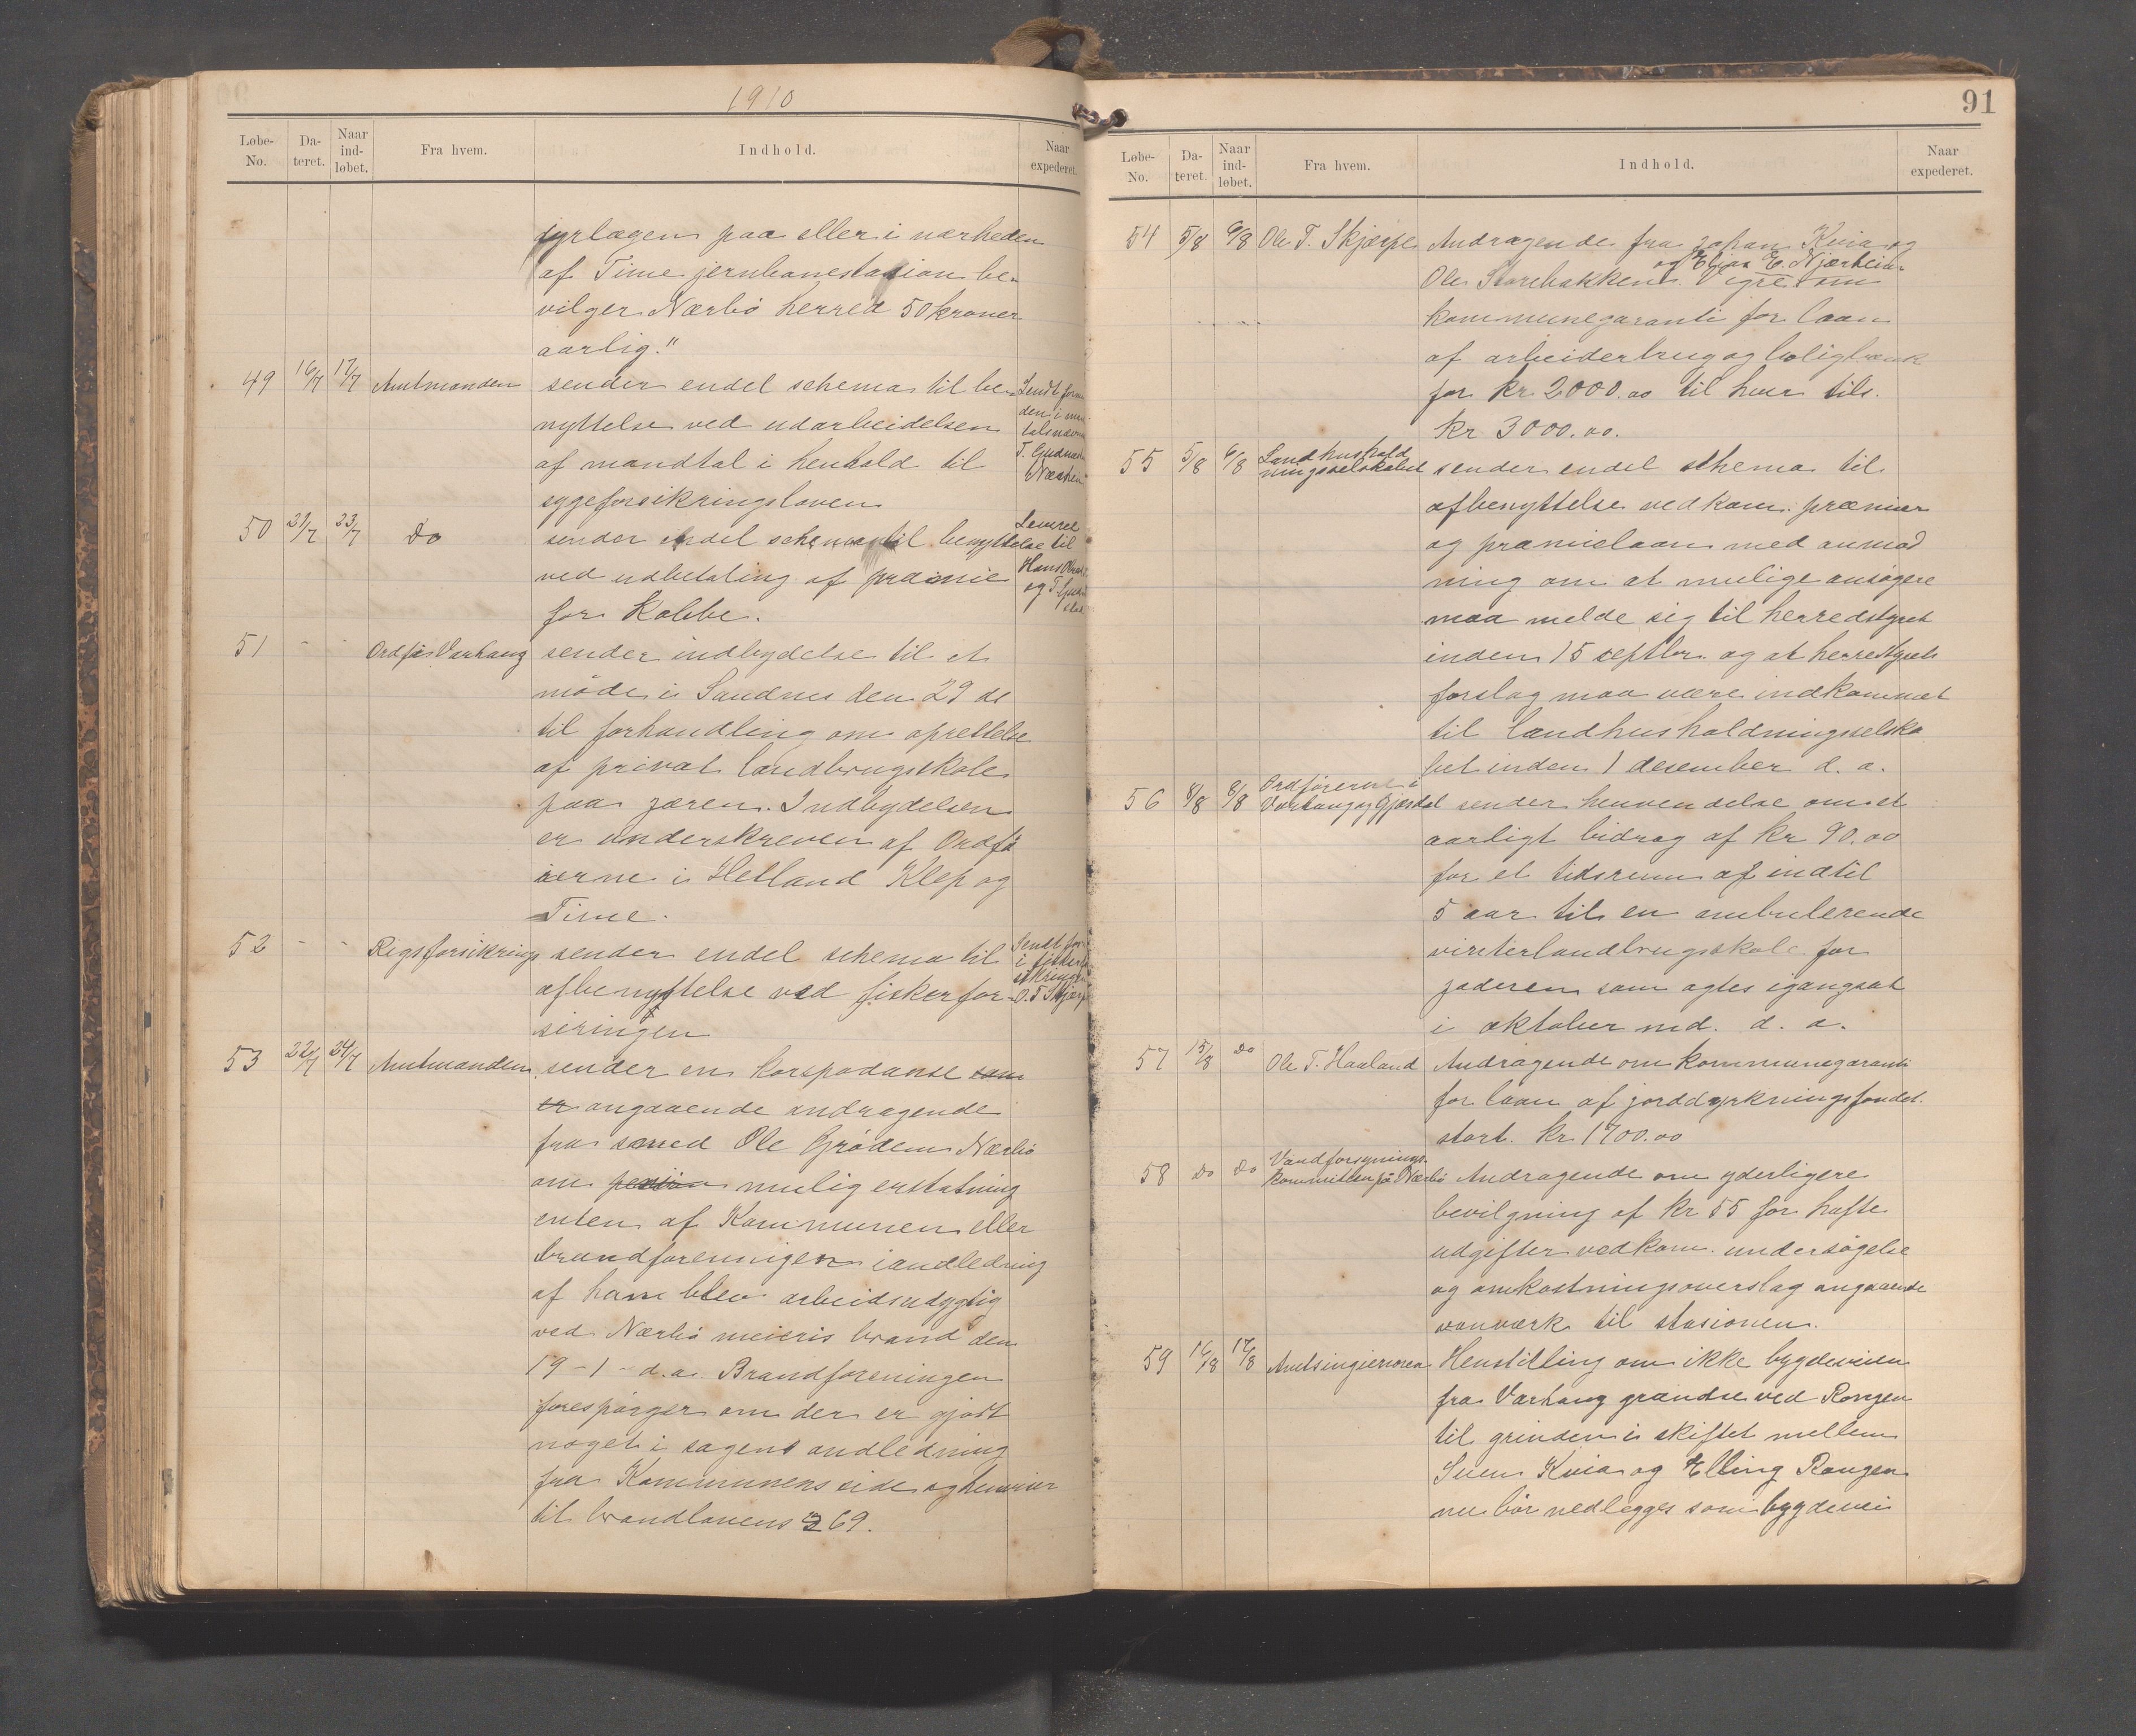 1910
Løbe-No. Da-teret. Naar ind-løbet. Fra hvem. Indhold. Naar expederet.
dyrlægen paa eller i nærheden
af Time jernbanestasion be-
vilger Nærbø herred 50 kroner
aarlig."
49 16/7 17/7 Amtmanden sender endel schema til be-
nyttelse ved udarbeidelsen
af mandtal i henhold til
sygeforsikringsloven
Sendt
den i
T.
50 21/7 23/7 Do sender endel schema til benyttelse
ved udbetaling af præmie
for Kobbe.
Leveret
til
Hans
og T.
51 - - Ordfør Varhaug sender indbydelse til et
møde i Sandnes den 29 ds
til forhandling om oprettelse
af privat landbrugsskole
paa jæren. Indbydelsen
er underskreven af Ordfø
rerne i Hetland Klep og
Time.
52 - - Rigsforsikrings sender endel schema til
afbenyttelse ved fiskerfor-
siringen
Sendt for
i fisker
sikringen
O. T. Skjærp
53 22/7 24/7 Amtmanden sender en korspodanse som
er angaaende andragende
fra smed Ole Grødem Nærbø
om pension mulig erstatning
enten af Kommunen eller
brandforenigen iandledning
af ham blev arbeidsudygtig
ved Nærbø meieris brand den
19-1- d.a. Brandforeningen
forespørger om der er gjort
noget i sagens andledning
fra Kommunens side og henviser
til brandlovens § 69.
91
Løbe-No. Da-teret. Naar ind-løbet. Fra hvem. Indhold. Naar expederet.
54 5/8 6/8 Ole T. Skjærpe Andragende fra Johan Kvia og
og Elias E. Njærheim
Ole Storebakken Vigre om
kommunegaranti for laan
af arbeiderbrug og boligbank
for kr 2000.00 til hver tils.
kr 3000.00.
55 5/8 6/8 Landhushold
ningsselskabet sender endel schema til
afbenyttelse vedkom. præmier
og præmielaan med anmod
ning om at mulige ansøgere
maa melde sig til herredstyret
inden 15 septbr. og at herredstyrets
forslag maa være indkommet
til landhusholdningsselska
bet inden 1 desember d. a.
56 8/8 8/8 Ordførerne i
Varhaug og Gjesdal sender henvendelse om et
aarligt bidrag af kr 90.00
for et tidsrum af indtil
5 aar til en ambulerende
vinterlandbrugsskole for
jæderen som agtes igangsat
i oktober md. d. a.
57 15/8 Do Ole T. Haaland Andragende om kommunegaranti
for laan af jorddyrkningsfondet
stort. kr. 1700.00
58 Do Do Vandforsynings-
kommitteen på Nærbø Andragende om yderligere
bevilgning af kr 55 for hafte
udgifter vedkom. undersøgelse
og omkostningsoverslag angaaende
vanværk til stasionen.
59 16/8 17/8 Amtsingieniøren Henstilling om ikke bygdeveien
fra Varhaug grændse ved Rongen
til grinden i skiftet mellem
Sven Kvia og Elling Rongen
nu bør nedlegges som bygdevei